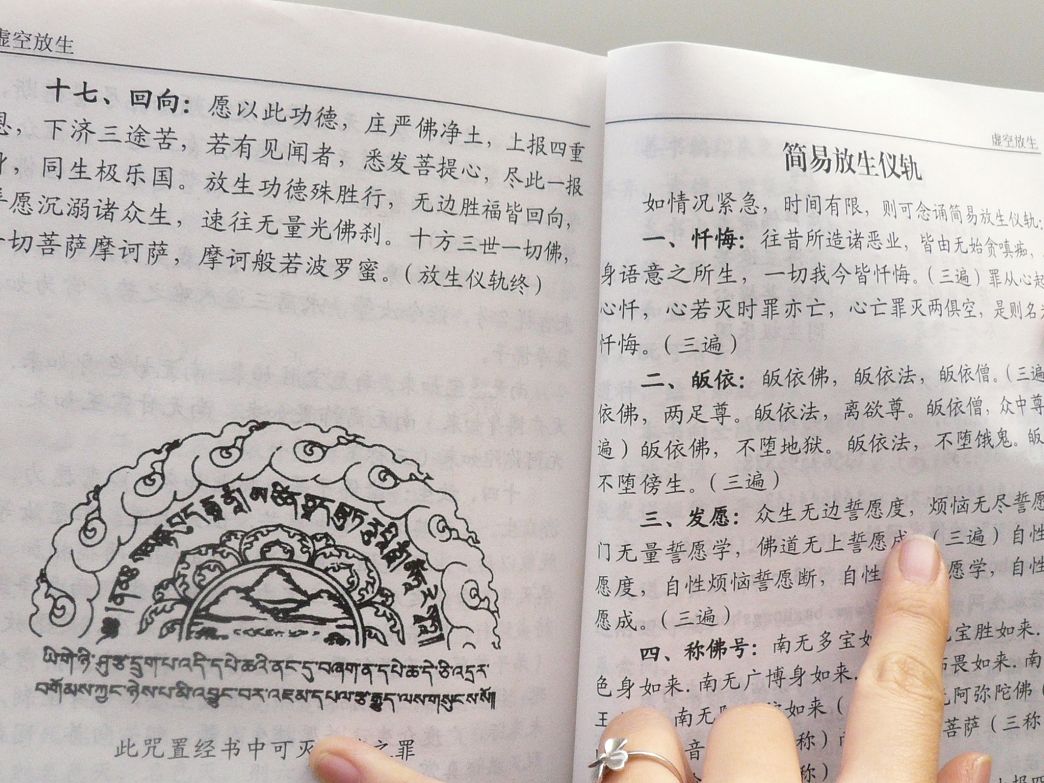 虚空放生
十七、回向：愿以此功德，庄严佛净土，上报四重
恩，下济三途苦，若有见闻者，悉发菩提心，尽此一报
身，同生极乐国。放生功德殊胜行，无边胜福皆回向，
愿沉溺诸众生，速往无量光佛刹。十方三世一切佛，
一切菩萨摩诃萨，摩诃般若波罗蜜。（放生仪轨终）
ཡི་གེ་ཉི་ཤུ་རྩ་དྲུག་པ་འདི་དཔེ་ཆའི་ནང་དུ་བཞག་ན་དཔེ་ཆ་དེ་ཅི་འདྲར་
བགོམས་ཀྱང་ཉེས་པ་མི་འབྱུང་བར་འཇམ་དཔལ་རྩ་རྒྱུད་ལས་གསུངས་སོ།།
此咒置经书中可灭 之罪
虚空放生
简易放生仪轨
如情况紧急，时间有限，则可念诵简易放生仪轨：
一、忏悔：往昔所造诸恶业，皆由无始贪嗔痴，
身语意之所生，一切我今皆忏悔。（三遍）罪从心起
心忏，心若灭时罪亦亡，心亡罪灭两俱空，是则名为
忏悔。（三遍）
二、皈依：皈依佛，皈依法，皈依僧。（三遍
依佛，两足尊。皈依法，离欲尊。皈依僧，众中尊
遍）皈依佛，不堕地狱。皈依法，不堕饿鬼。皈
不堕傍生。（三遍）
三、发愿：众生无边誓愿度，烦恼无尽誓愿
门无量誓愿学，佛道无上誓愿成。（三遍）自性
愿度，自性烦恼誓愿断，自性 愿学，自性
愿成。（三遍）
四、称佛号：南无多宝如 宝胜如来．
色身如来．南无广博身如来． 怖畏如来．南
王 南无 如来（ 无阿弥陀佛（
音 称） 菩萨（三称
称）
上报四